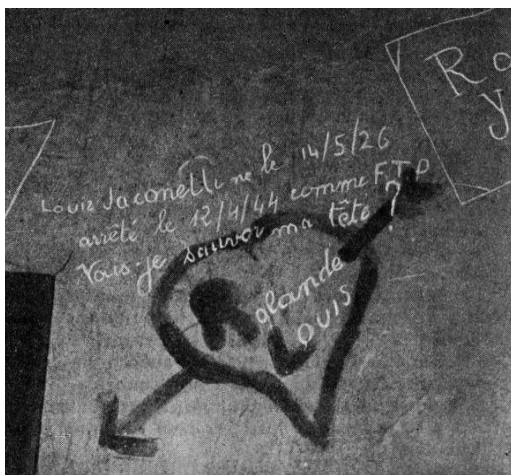 Ro
y
Louis Jaconelli ne le 14/5/26
arrêté le 12/4/44 comme F.T.P
Vais-je sauver ma tête ?
Rolande
LOUIS